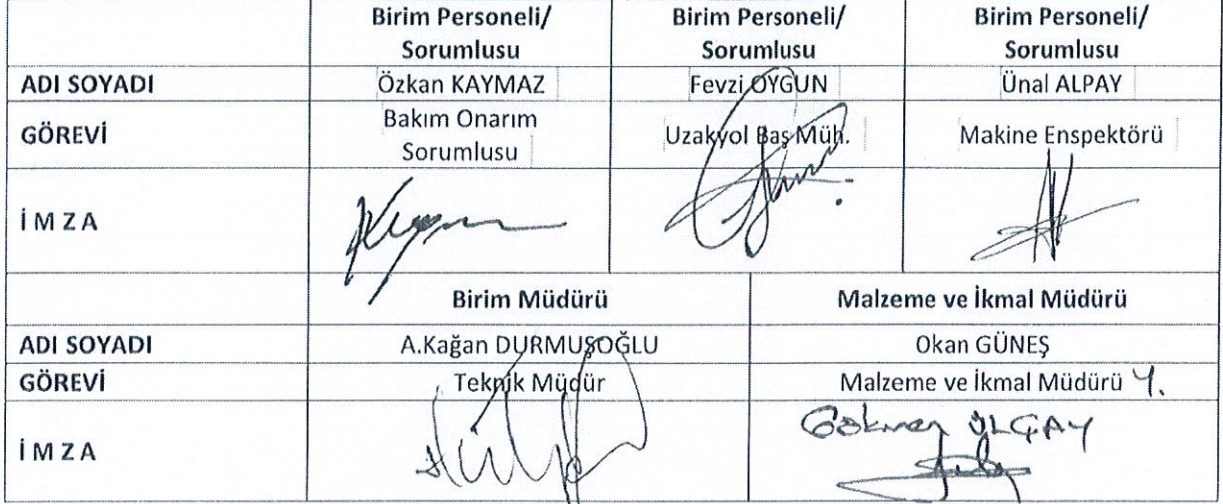 Birim Personeli/ Birim Personeli/ Birim Personeli/
Sorumlusu Sorumlusu Sorumlusu
ADI SOYADI Özkan KAYMAZ Fevzi OYGUN Ünal ALPAY
GÖREVİ Bakım Onarım Uzakyol Baş Müh. Makine Enspektörü
Sorumlusu
İ M Z A
Birim Müdürü Malzeme ve İkmal Müdürü
ADI SOYADI A.Kağan DURMUŞOĞLU Okan GÜNEŞ
GÖREVİ Teknik Müdür Malzeme ve İkmal Müdürü Y.
Gökmen ÜLGAY
İ M Z A